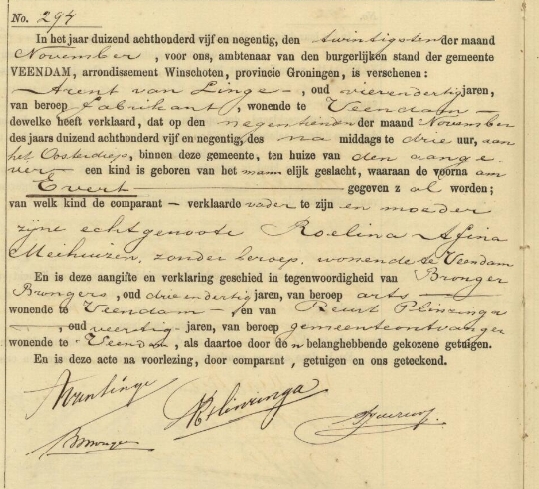 No. 294
In het jaar duizend achthonderd vijf en negentig, den twintigsten der maand
November, voor ons, ambtenaar van den burgerlijken stand der gemeente
VEENDAM, arrondissement Winschoten, provincie Groningen, is verschenen:
Arent van Linge, oud vierendertig jaren,
van beroep fabrikant, wonende te Veendam
dewelke heeft verklaard, dat op den negentienden der maand November
des jaars duizend achthonderd vijf en negentig, des na middags te drie uur, aan
het Oosterdiep, binnen deze gemeente, ten huize van den aange-
ver een kind is geboren van het mannelijk geslacht, waaraan de voorna am
Evert gegeven z al worden;
van welk kind de comparant verklaarde vader te zijn en moeder
zijne echtgenoote Roelina Afina
Meihuizen, zonder beroep, wonende te Veendam
En is deze aangifte en verklaring geschied in tegenwoordigheid van Bronger
Brongers, oud drie en dertig jaren, van beroep arts
wonende te Veendam en van Beurt Plinzinga
, oud veertig jaren, van beroep gemeenteontvanger
wonende te Veendam, als daartoe door de n belanghebbende gekozene getuigen.
En is deze acte na voorlezing, door comparant, getuigen en ons geteekend.
AvanLinge